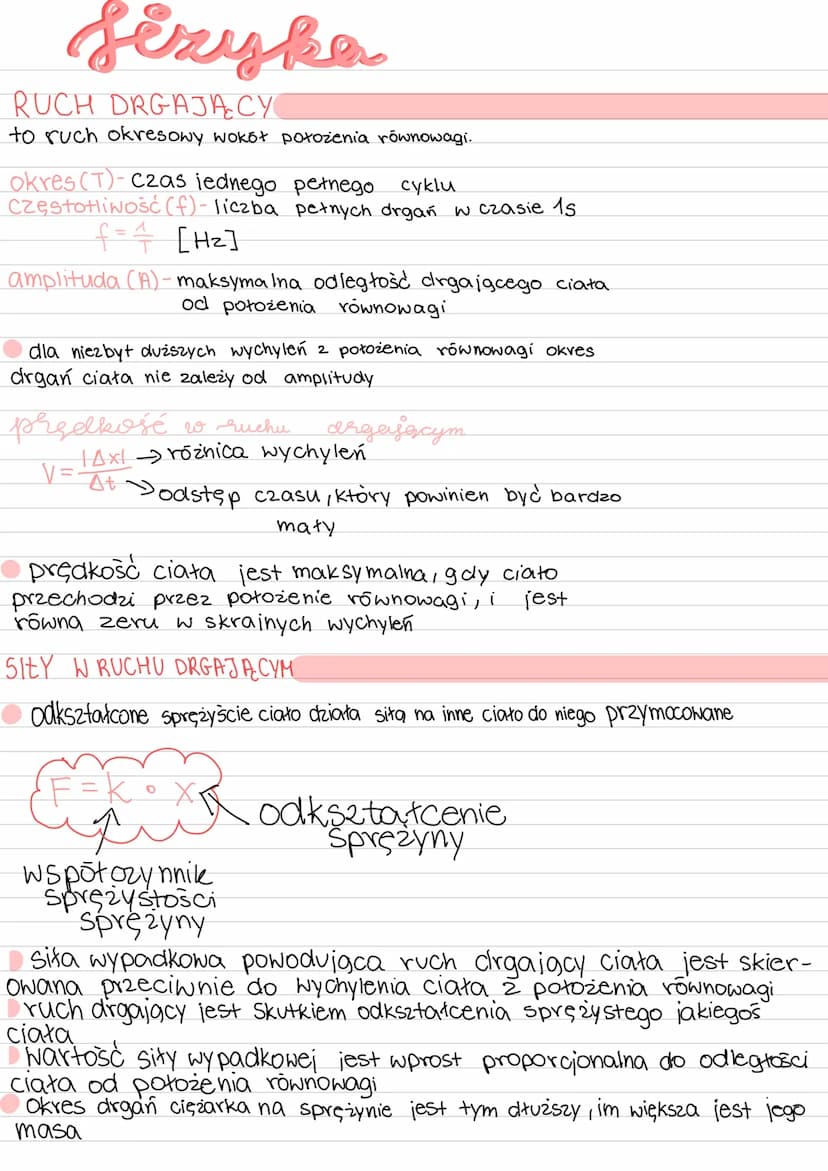 fizyka
RUCH DRGAJĄCY
to ruch okresowy wokół położenia równowagi.
okres (T) - czas jednego pełnego cyklu
częstotliwość (f) - liczba pełnych drgań w czasie 1s
f = 1/T [Hz]
amplituda (A) - maksymalna odległość drgającego ciała
od położenia równowagi
dla niezbyt duższych wychyleń z położenia równowagi okres
drgań ciała nie zależy od amplitudy
prędkość w ruchu drgającym
V = |Δx| / Δt → różnica wychyleń
→ odstęp czasu, który powinien być bardzo
mały
prędkość ciała jest maksymalna, gdy ciało
przechodzi przez położenie równowagi, i jest
równa zeru w skrajnych wychyleń
SIŁY W RUCHU DRGAJĄCYM
odkształcone sprężyście ciało działa siłą na inne ciało do niego przymocowane
F = k • x
odkształcenie
sprężyny
współczynnik
sprężystości
sprężyny
siła wypadkowa powodująca ruch drgający ciała jest skier-
owana przeciwnie do wychylenia ciała z położenia równowagi
ruch drgający jest skutkiem odkształcenia sprężystego jakiegoś
ciała
wartość siły wypadkowej jest wprost proporcjonalna do odległości
ciała od położenia równowagi
Okres drgań ciężarka na sprężynie jest tym dłuższy, im większa jest jego
masa